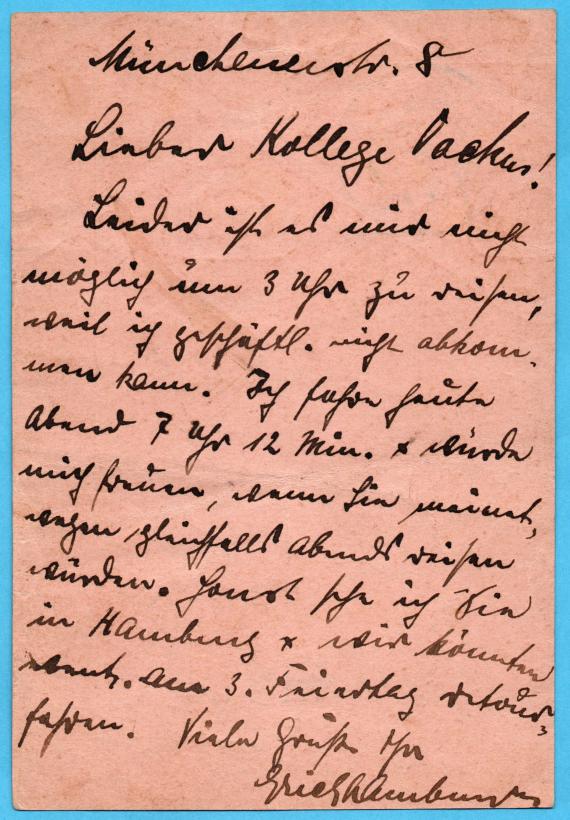 Münchenerstr. 8
Lieber Kollege Packus!
Leider ist es mir nicht
möglich um 3 Uhr zu reisen,
weil ich geschäftl. nicht abkom-
men kann. Ich fahre heute
Abend 7 Uhr 12 Min. & würde
mich freuen, wenn Sie meinet-
wegen gleichfalls Abends reisen
würden. Sonst sehe ich Sie
in Hamburg & wir könnten
event. am 3. Feiertag retour-
fahren. Viele Grüße Ihr
Erich Hamburger